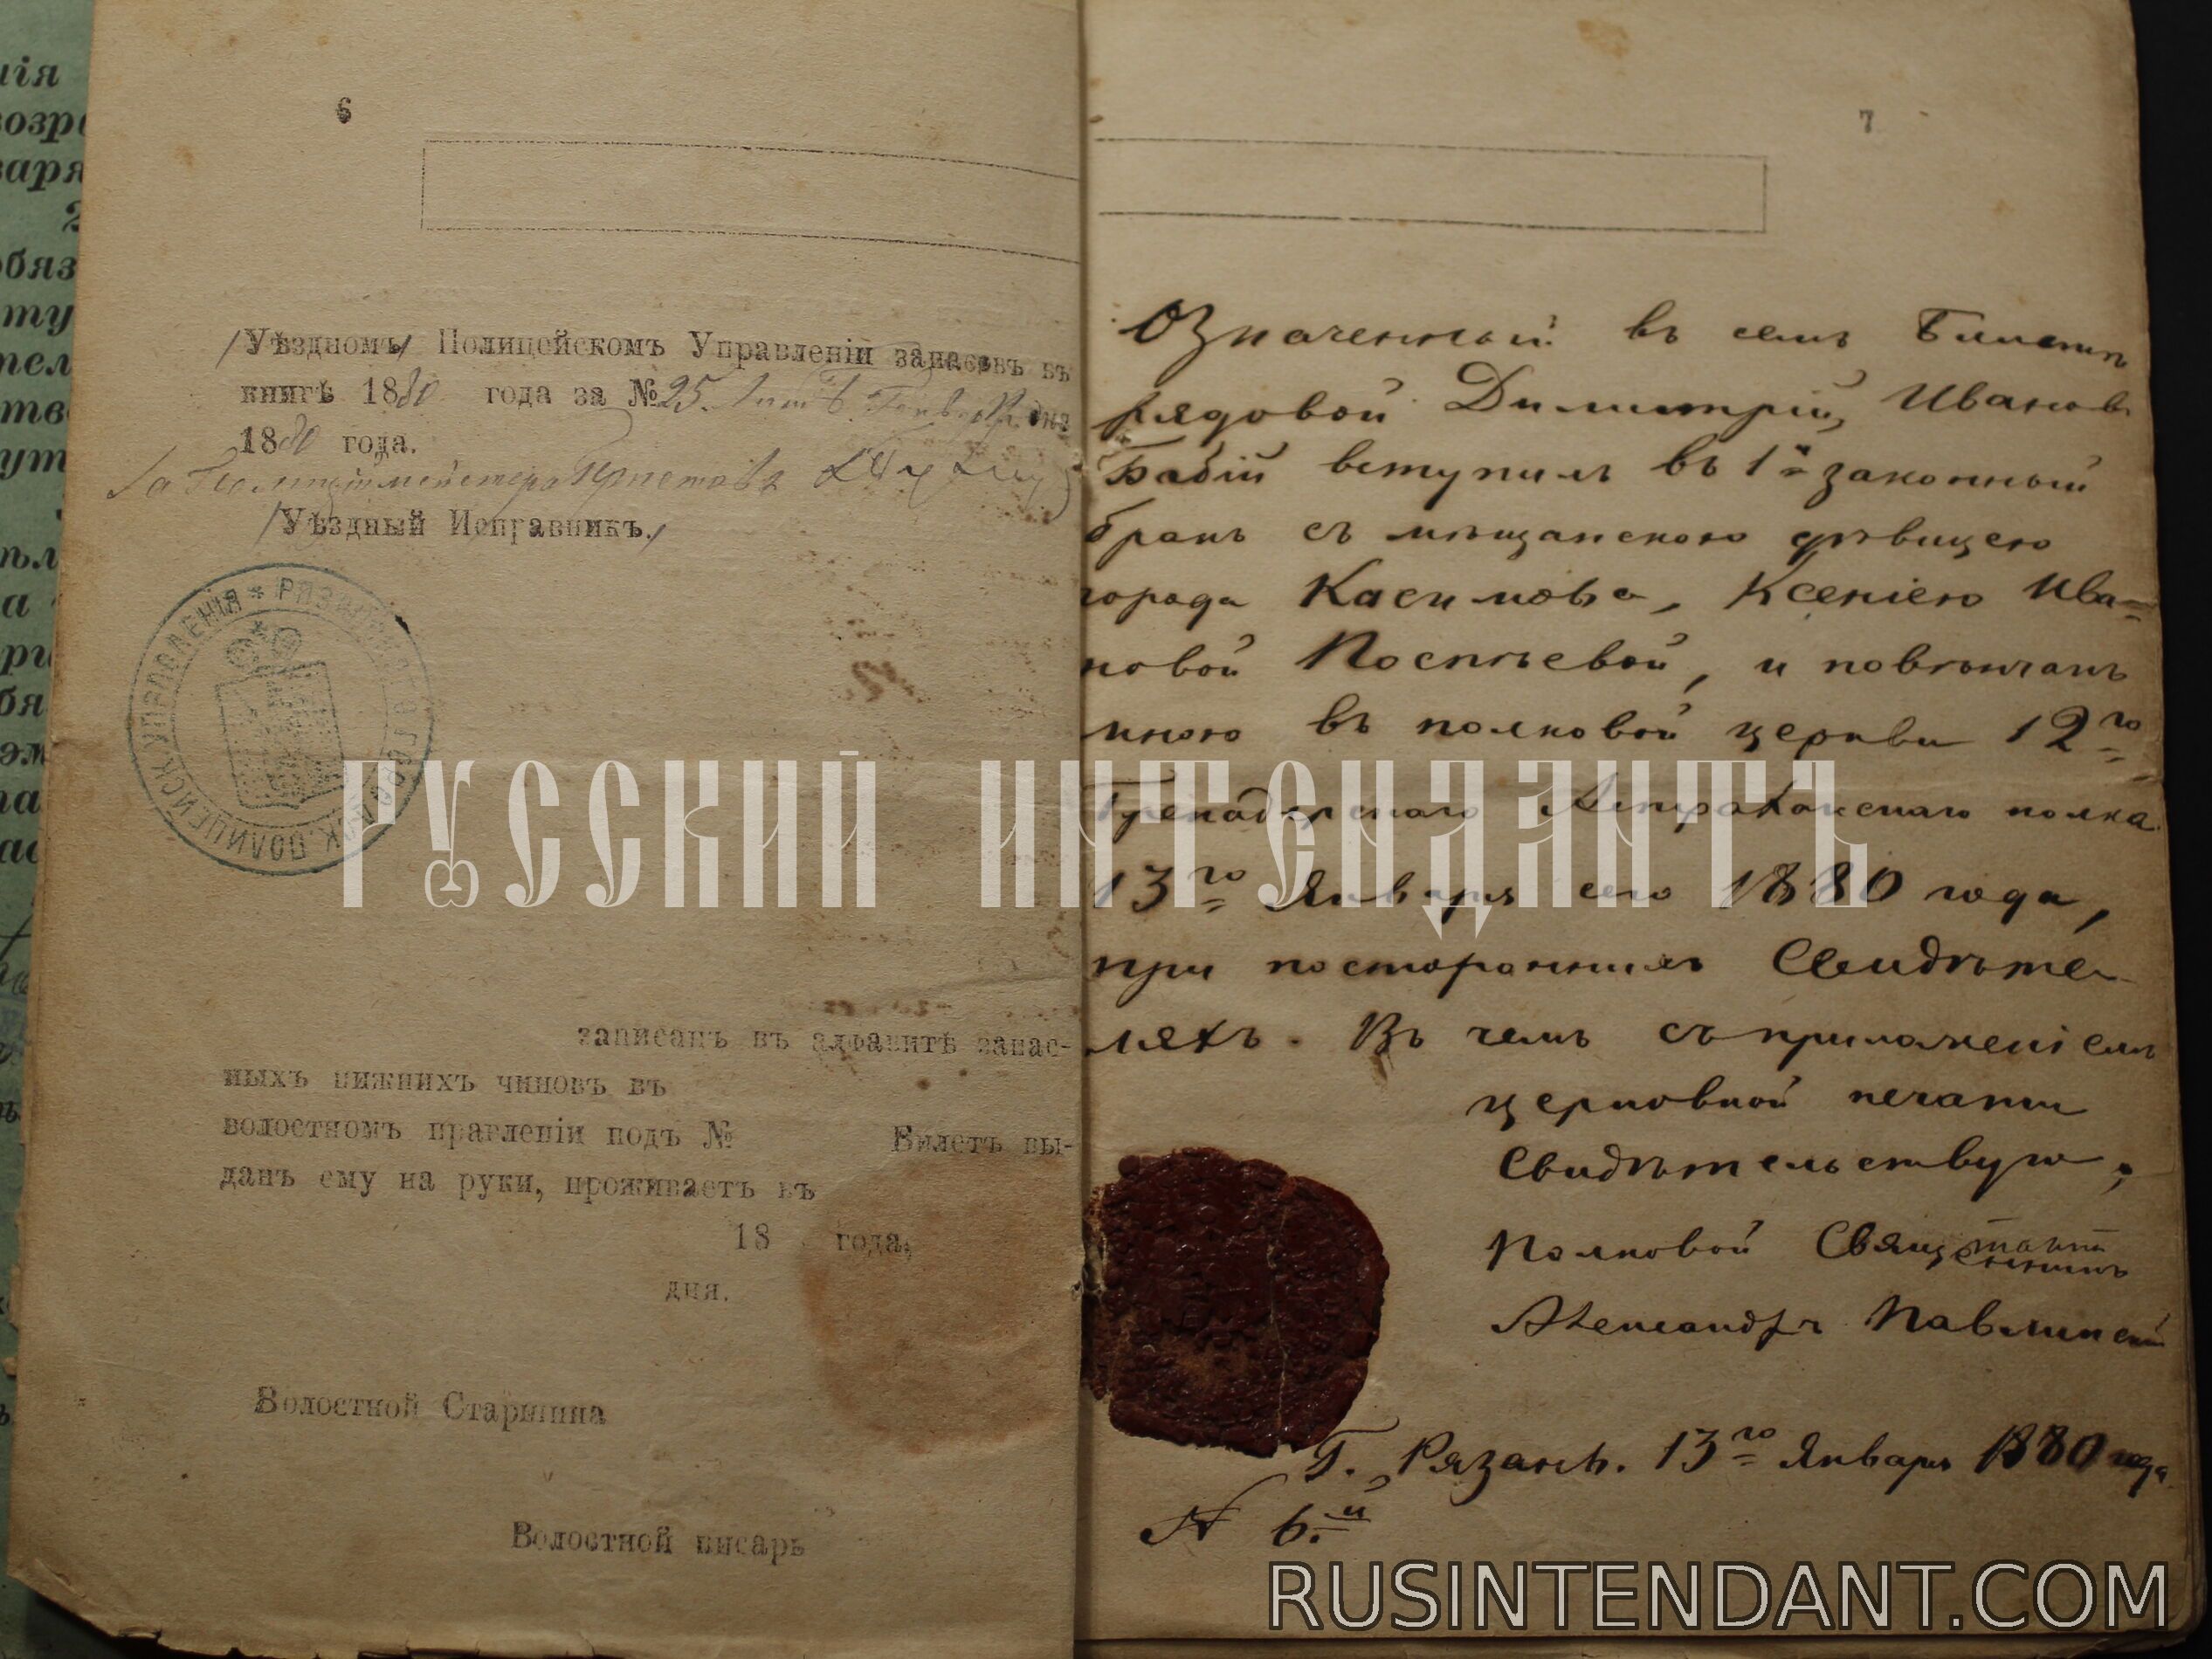 6
/Уѣздномъ/ Полицейскомъ Управленіи записанъ въ
книгѣ 1880 года за № 25.
1880 года.
За Полиціймейстера Приставъ
/Уѣздный Исправникъ./
РЯЗАНСК ГОРОДСК. ПОЛИЦЕЙСК УПРАВЛЕНІЯ
записанъ въ алфавитѣ запас-
ныхъ нижнихъ чиновъ въ
волостномъ правленіи подъ № Билетъ вы-
данъ ему на руки, проживаетъ въ
18 года,
дня.
Волостной Старшина
Волостной писарь
7
Означенный въ семъ билетѣ
рядовой Димитрій Ивановъ
Бабій вступилъ въ 1й законный
бракъ съ мѣщанскою дѣвицею
города Касимова, Ксеніею Ива-
новой Поспѣевой, и повѣнчанъ
мною въ полковой церкви 12го
Гренадерскаго Астраханскаго полка
13го Января сего 1880 года,
при постороннихъ Свидѣте-
ляхъ. Въ чемъ съ приложеніемъ
церковной печати
Свидѣтельствую;
Полковой Священникъ
Александръ Павлинскій
Г. Рязань. 13го Января 1880 года
№ 6.й
РУССКИЙ ИНТЕНДАНТЪ
RUSINTENDANT.COM